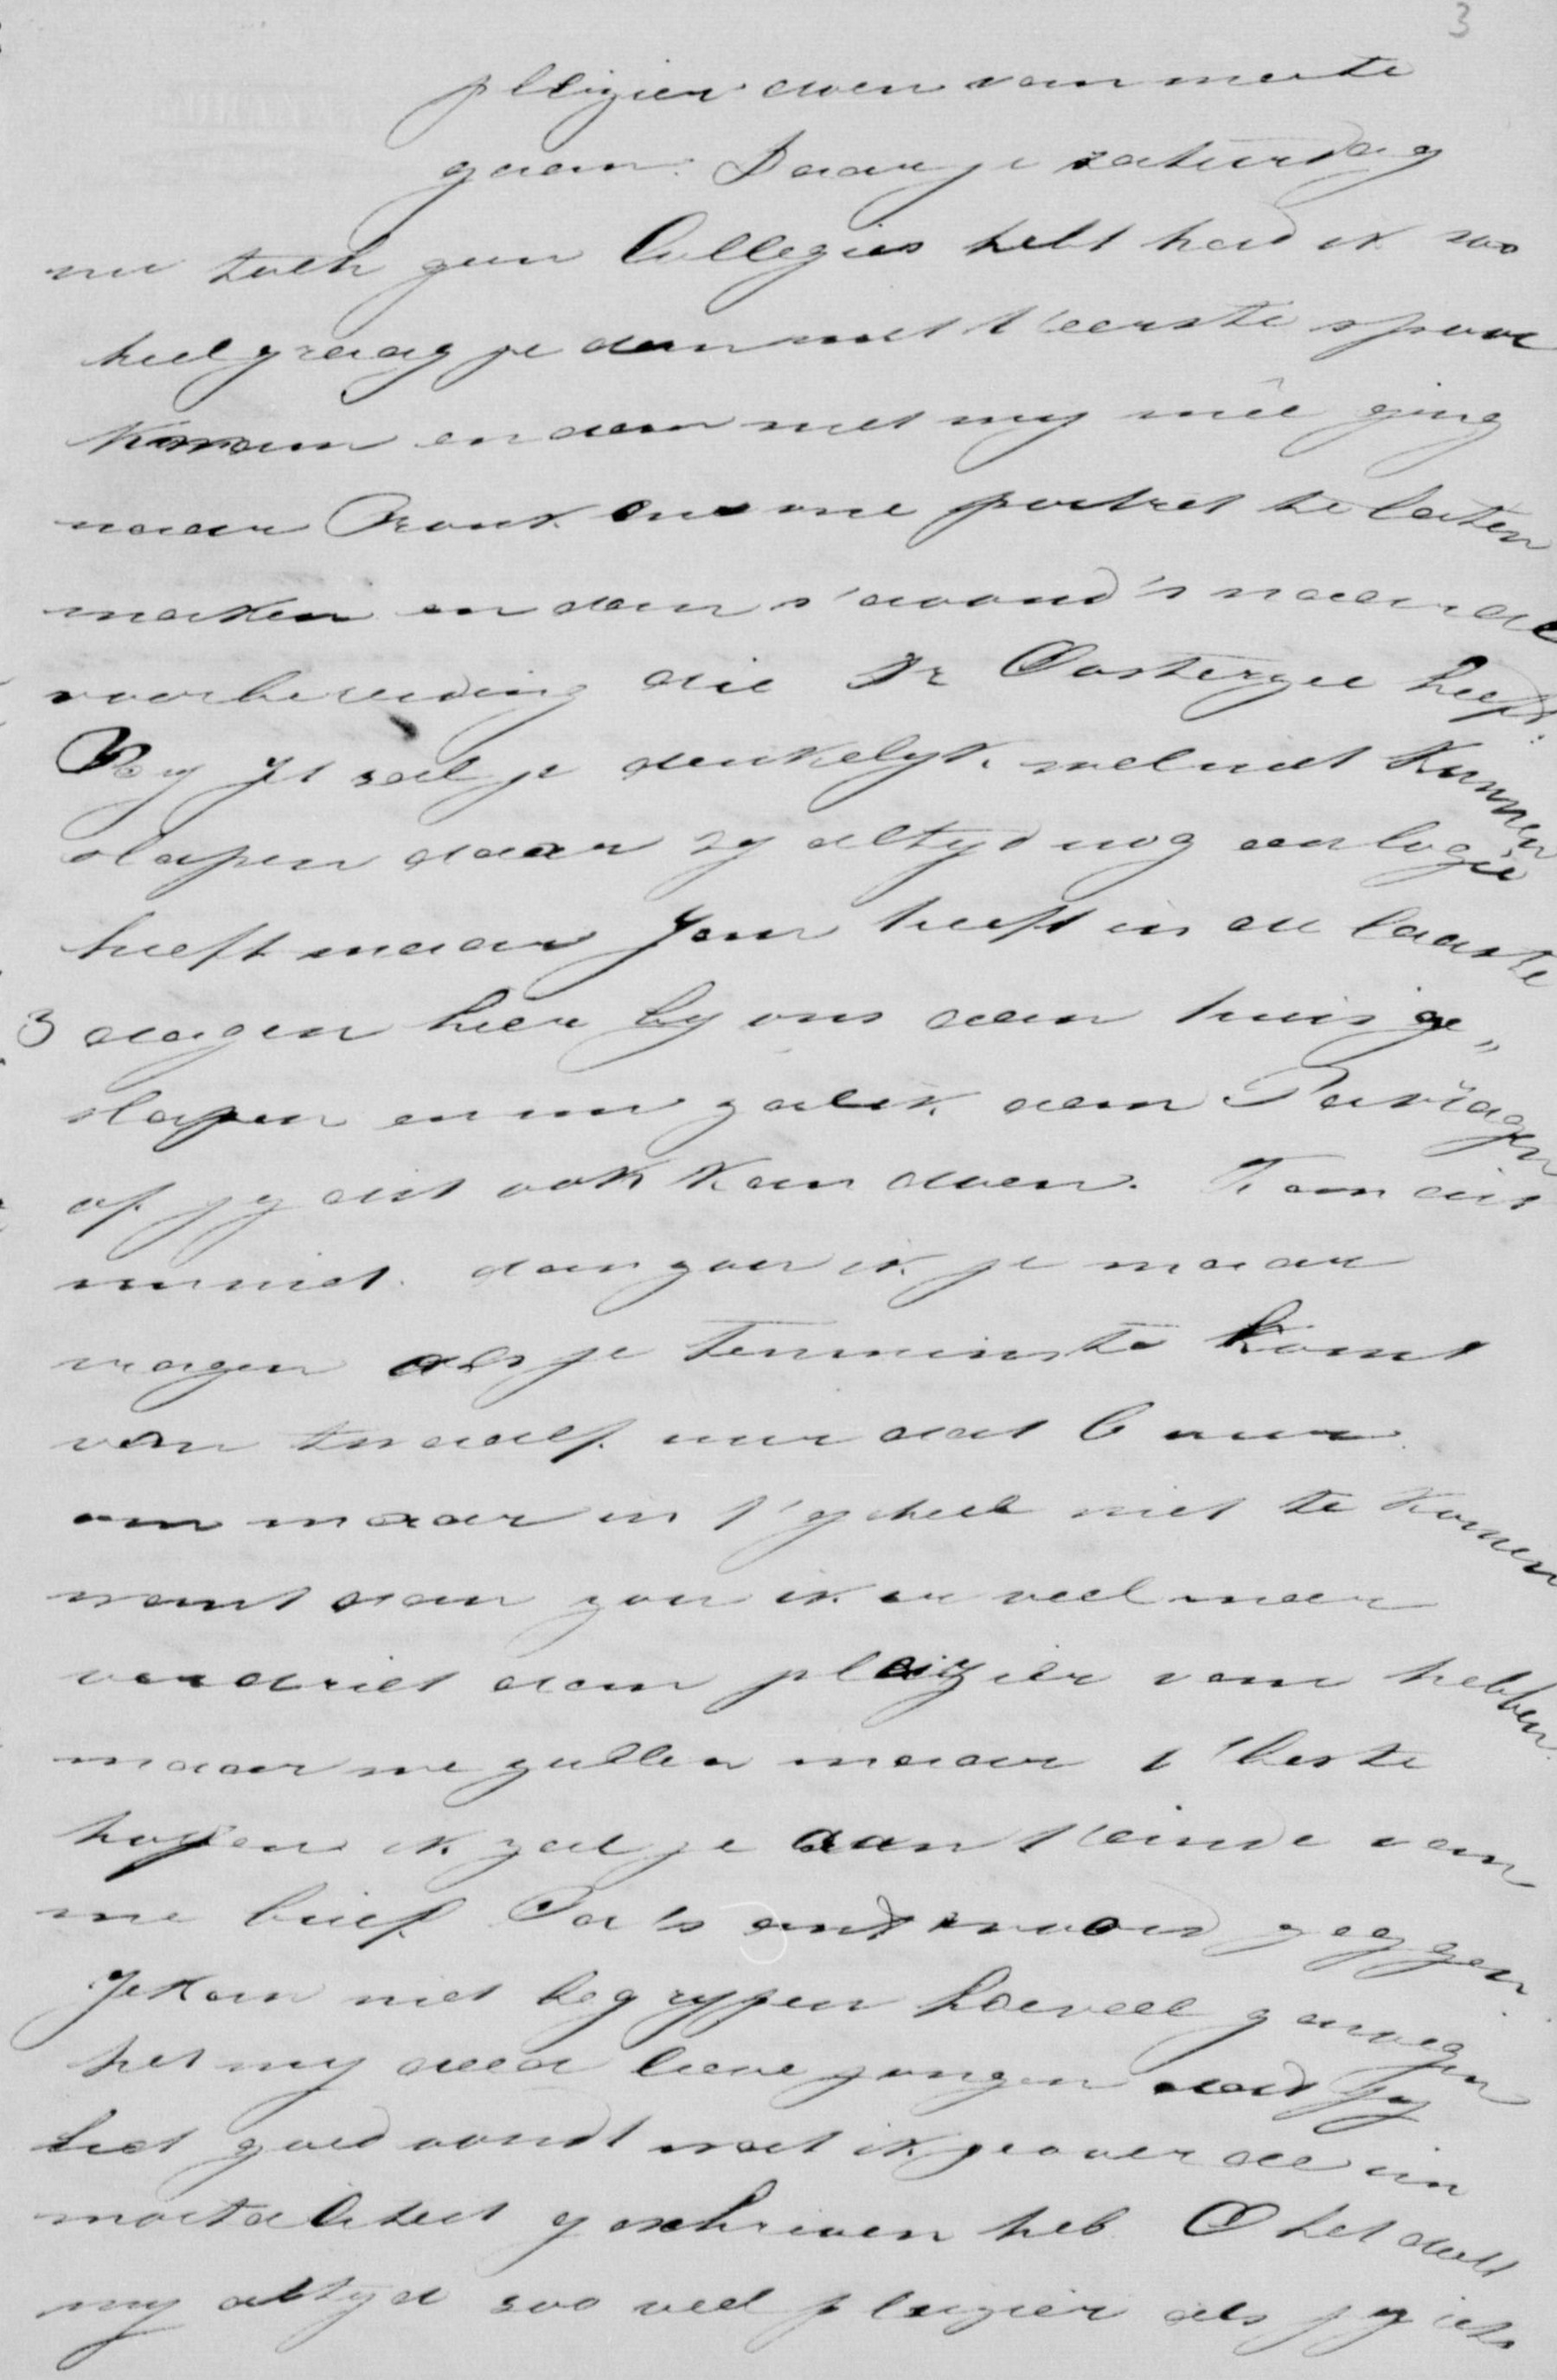 3
pleizier doen van mee te
gaan. Daar je zaturdag
nu toch geen Collegies hebt had ik zoo
heel graag je dan met t'eerste spoor
kwam en dan met my mêe ging
naar Pronk om me portret te laten
maken en dan s'avond's naar de
voorbereiding die Dr Oosterzee heeft.
By Jt zal je denkelyk wel niet kunnen
slapen daar zy altyd nog een logé
heeft maar Jan heeft in de laaste
3 dagen hier by ons aan huis ge„
slapen en nu zal ik aan Pa vragen
of jy dit ook kan doen. Kan dit
nu niet dan zou ik je maar
vragen als je tenminste komt
van twaalf uur dat uur
om maar in t'geheel niet te komen
want dan zou ik er veel meer
verdriet dan pleizier van hebben.
maar we zullen maar t'beste
hopen ik zal je aan t'einde van
me brief Pa's antwoord zeggen.
Je kan niet begrypen hoeveel genoegen
het my deed lieve jongen dat jy
het goed vondt wat ik je over de im
mortaliteit geschreven heb. O het doet
my altyd zoo veel pleizier als jy iets